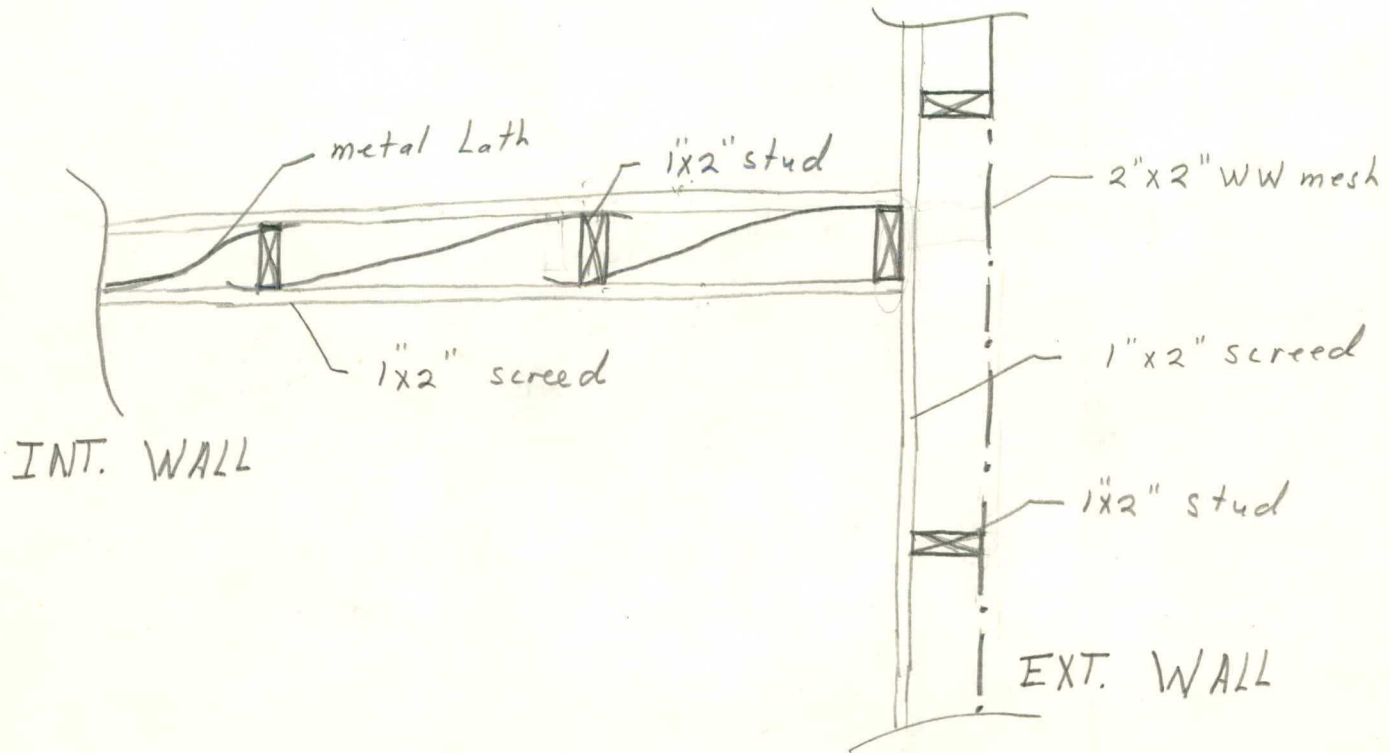 metal Lath
1"x2" stud
2"x2" WW mesh
1"x2" screed
1"x2" screed
INT. WALL
1"x2" stud
EXT. WALL